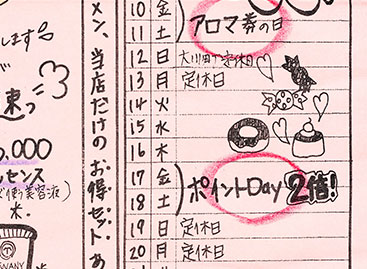 10 金
11 土
アロマ券の日
12 日 大川町で定休日
13 月 定休日
14 火
15 水
16 木
17 金
18 土
ポイントDay 2倍!
19 日 定休日
20 月 定休日
メン、当店だけの お得セット あ
します
,000
ッセンス
美容液)
木.
WANY